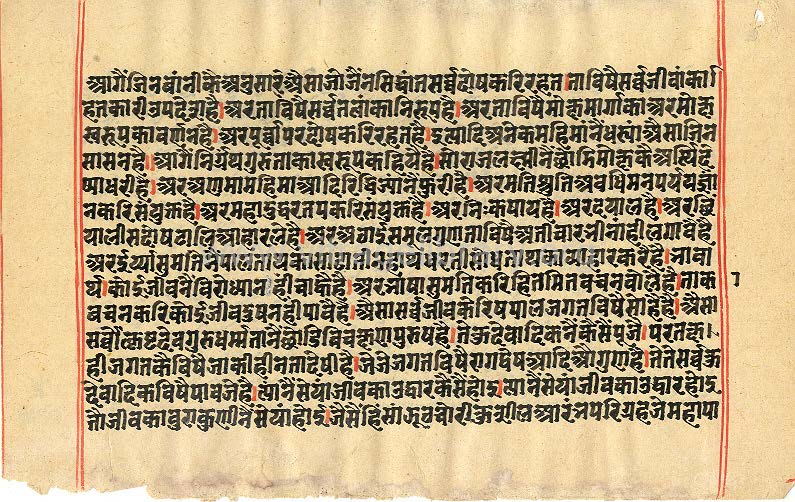 आगैं जिनबांनीकै अनुसारै अैसा जो जैनसिद्धांत सर्व्व दोष करि रहत। ता विषै सर्व जीवांका
हतकारी उपदेश है। अर ता विषै सर्व तत्वांका निरूपण है। अर ता विषै मोक्षमार्गका अर मोक्ष
स्वरूपका वर्णन है। अर पूर्वापर दोष करि रहत है। इत्यादि अनेक महिमांनैं धस्यां अैसा जिन
सासन है। आगैं निर्ग्रंथ गुरु ताका स्वरूप कहिये है। सो राजलक्ष्मीनैं छाडि मोक्षकै अर्थि दि
ष्या धरी है। अर अणमा महिमा आदि रिधि ज्यांनै फुरी है। अर मति श्रुति अवधि मनपर्यय ज्ञा
न करि संयुक्त है। अर महा दुद्धर तप करि संयुक्त है। अर निःकषाय है। अर दयाल है। अर छि
यालीस दोष टालि आहार ले है। अर अठाईस मूलगुण ता विषै अतीचार भी नांही लगावै है
अर ईर्या सुमतिनै पालता थका साढा तीन हाथ धरती सोधता विहार करै है। भावा
र्थ। काई जीवनैं विरोध्या नहीं चाहै है। अर भाषा सुमति करि हित मित वचन बोलै है। ताका
वचन करि काई जीव दुष नहीं पावै है। अैसा सर्व जीव करिषपाल जगत विषै सोहै है। अैसा
सर्वोत्कृष्ट देव गुरु धर्म्म तानैं छोडि विचक्षण पुरुष है। ते कुदेवादिकनै कैसै पूजै। परतक्ष।
ही जगतकै विषै जाकी हीनता देषी है। जे जे जगत विषै राग दोष आदि औगुण है। ते ते सर्व कु
देवादिक विषै पावजे है। त्यानै सेयां जीवका उद्धार कैसै होइ। त्यानै सेयां जीवका उद्धार होइ
तौ जीवका बुरा कुणीनै सेयां होइ। जैसै हिंसा झूठ चोरी कुसील आरंभ परिग्रह जे महापा